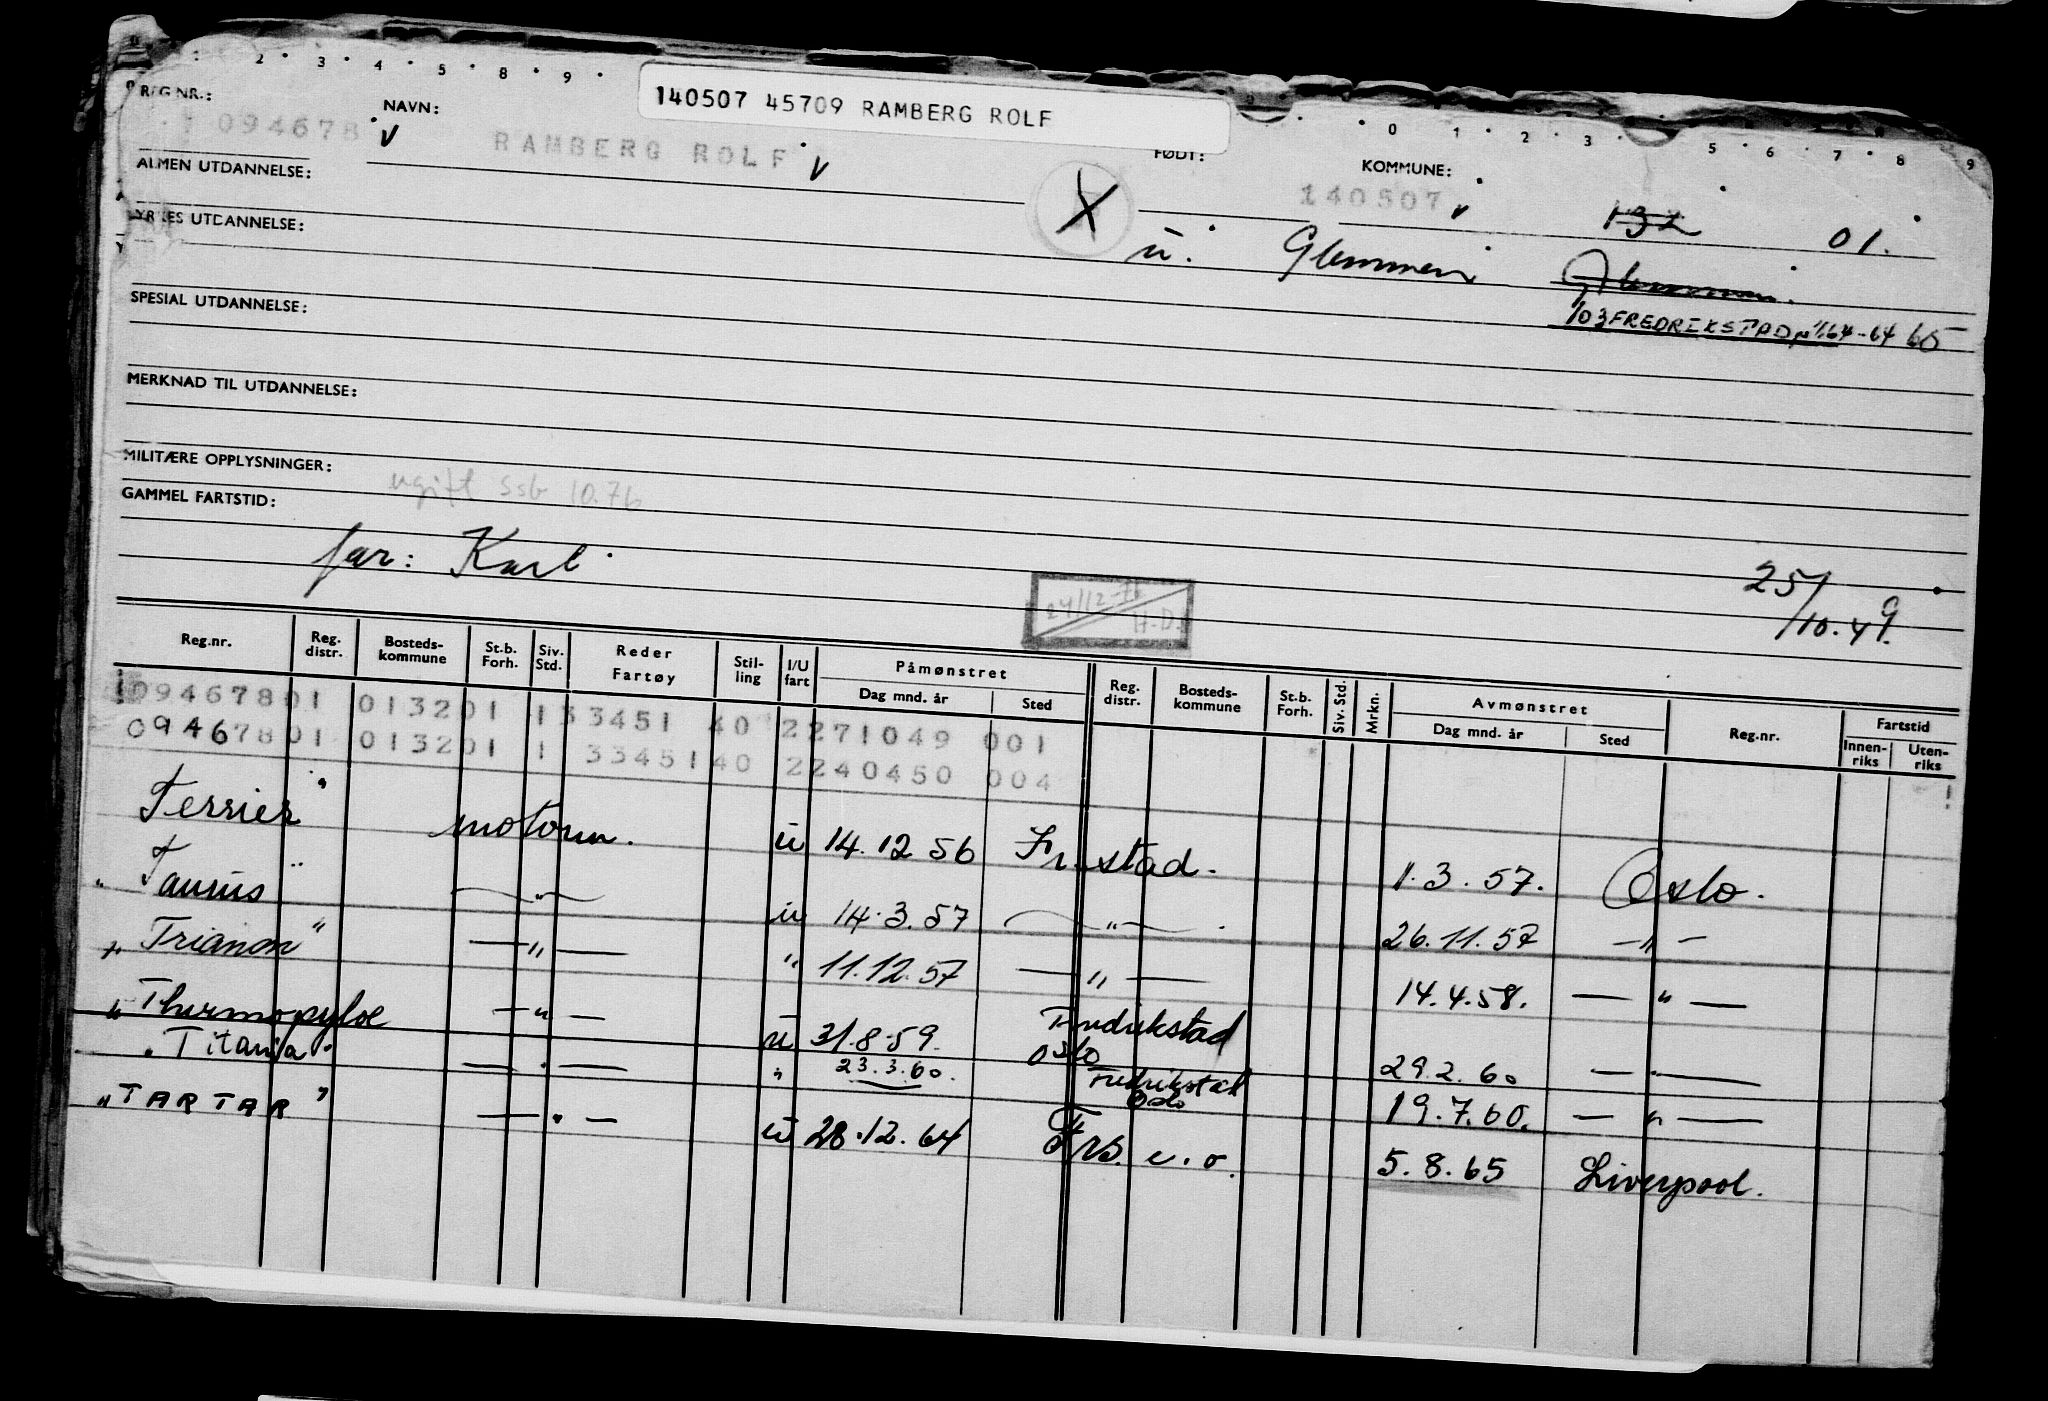 2 · 3 · 4 · 5 · 8 · 9 ·
140507 45709 RAMBERG ROLF
0 · 1 · 2 · 3 · 5 · 6 · 7 · 8 · 9
REG NR.: NAVN: FØDT: KOMMUNE:
094678 v RAMBERG ROLF v 140507 v 132 01.
ALMEN UTDANNELSE:
YRKES UTDANNELSE: X ü. Glemmen Glemmen.
SPESIAL UTDANNELSE: 103 FREDRIKSTAD 1/1 64-64 65
MERKNAD TIL UTDANNELSE:
MILITÆRE OPPLYSNINGER:
ugift ssb 10.76
GAMMEL FARTSTID:
far: Karl
25/10.49.
24/12-
H.D.
Reg.nr. Reg. distr. Bosteds-kommune St.b. Forh. Siv. Std. Reder Fartøy Stil-ling I/U fart Påmønstret Dag mnd. år Sted Reg. distr. Bosteds-kommune St.b. Forh. Siv. Std. Mrkn. Avmønstret Dag mnd. år Sted Reg.nr. Fartstid Innen-riks Uten-riks
09467801 013201 133451 40 2271049 001
09467801 013201 1 3345140 2240450 004
Terrier" motorm. ü 14.12 56 Fr.stad. 1.3.57. Oslo.
" Taurus " — " — ü 14.3.57 — " — 26.11.57 — " —
" Trianon" — " — " 11.12.57 — " — 14.4.58. — " —
" Thermopylæ — " — ü 31.8.59. Fredrikstad 29.2.60 — " —
" Titania" — " — " 23.3.60. Oslo Fredrikstad Oslo 19.7.60. — " —
" TARTAR" — " — ü 28.12.64 Frs. e.o. 5.8.65 Liverpool.